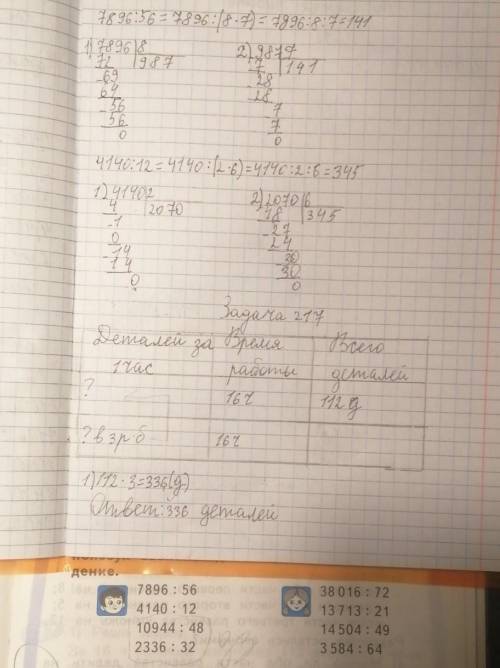 7896:56=7896:(8·7)=7896:8:7=141
1) 7896 8
72 987
69
64
56
56
0
2) 987 7
7 141
28
28
7
7
0
4140:12=4140:(2·6)=4140:2:6=345
1) 4140 2
4 2070
1
0
14
14
0
2) 2070 6
18 345
27
24
30
30
0
Задача 217
Деталей за 1 час
Время работы
Всего деталей
? 16ч 112 д
? в 3 р. б 16ч
1) 112·3=336(д)
Ответ: 336 деталей
денке.
7896 : 56
4140 : 12
10944 : 48
2336 : 32
38 016 : 72
13 713 : 21
14 504 : 49
3 584 : 64